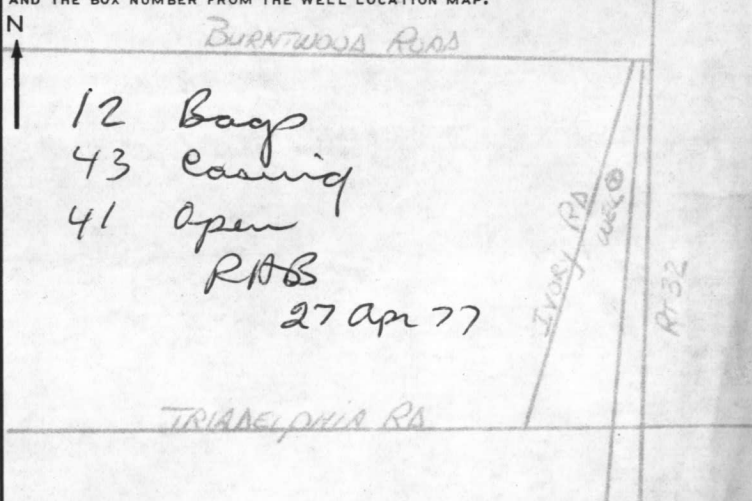 AND THE BOX NUMBER FROM THE WELL LOCATION MAP.
N
BURNTWOOD ROAD
12 Bags
43 Casing
41 Open
RAB
27 Apr 77
IVORY RD
WELL
RT 32
TRIADELPHIA RD